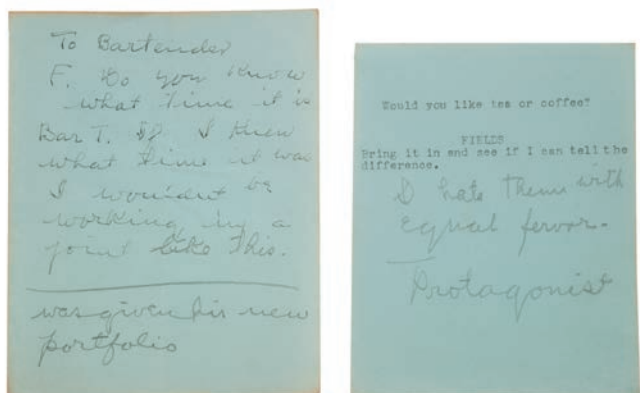 To Bartender
F. Do you know
what time it is
Bar T. If I knew
what time it was
I wouldnt be
working in a
joint like this.
was given his new
portfolio
Would you like tea or coffee?
FIELDS
Bring it in and see if I can tell the
difference.
I hate them with
equal fervor.
Protagonist